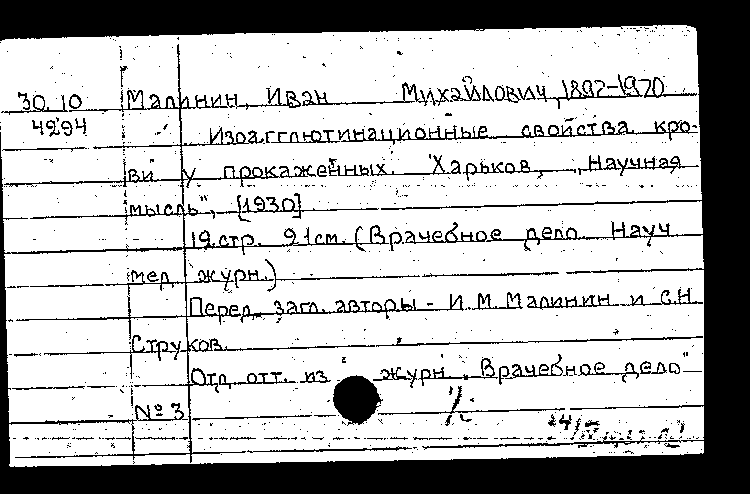 30.10 Малинин, Иван Михайлович, 1897-1970
4294 Изоагглютинационные свойства кро-
ви у прокаженных. Харьков, „Научная
мысль", [1930]
12 стр. 21 см. (Врачебное дело Науч
мед журн.)
Перед загл. авторы - И.М. Малинин и С.Н.
Струков.
Отд. отт. из журн. „Врачебное дело"
№ 3